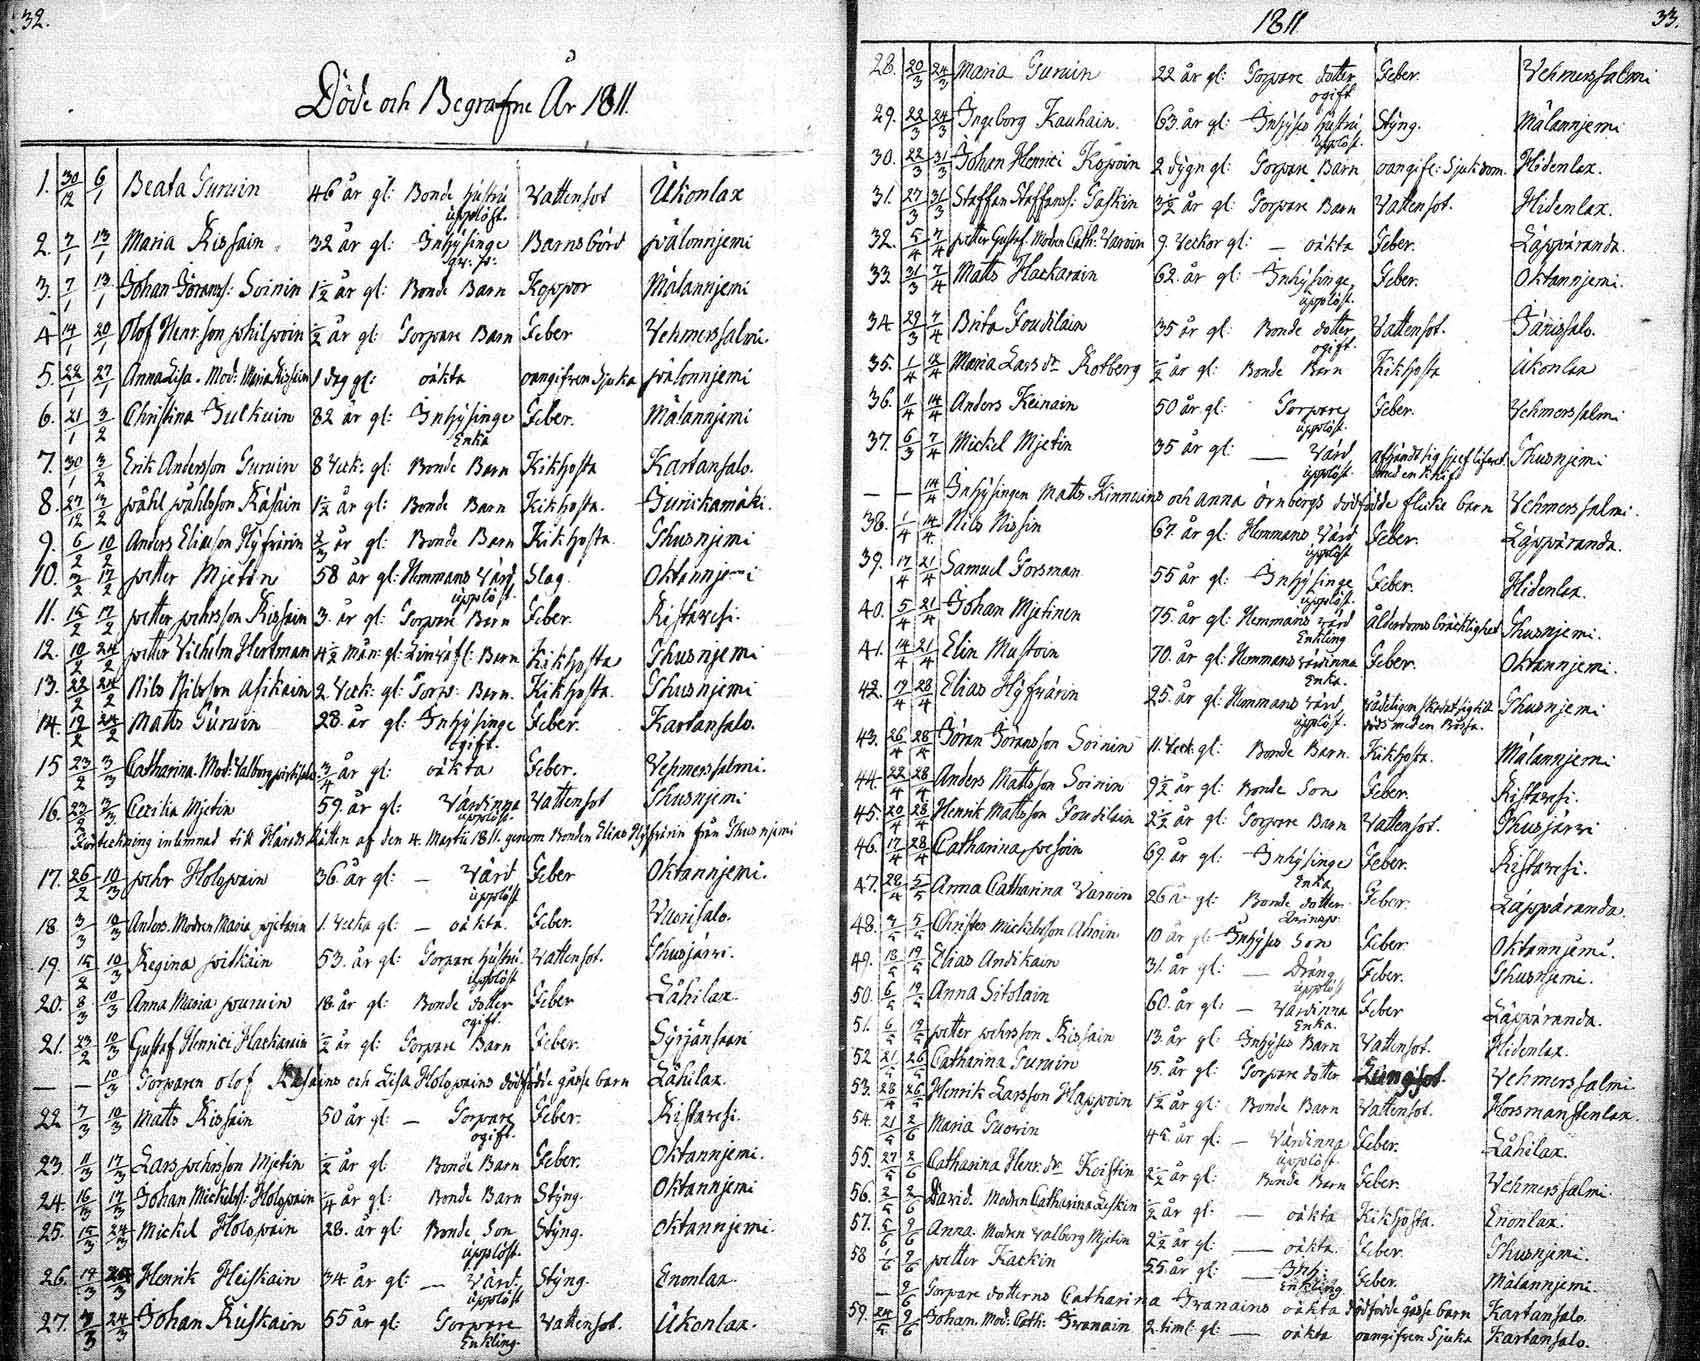 32.
Döde och Begrafne År 1811.
1. 30/12 6/1 Beata Gurvin 46 år gl: Bonde hustru Vattensot Ukonlax
upplöst.
2. 7/1 13/1 Maria Kissain 32 år gl: Inhysinge Barnsbörd pälonnjemi
3. 7/1 13/1 Johan Göranss: Soinin 1½ år gl: Bonde Barn Koppor Målannjemi
4 14/1 20/1 Olof Henr:son philpoin ½ år gl: Torpare Barn Feber Vehmersalmi
5. 22/1 27/1 Anna Lisa. Mod: Maria Kissain 1 dag gl: oäkta oangifven Sjuka pälonnjemi
6. 21/1 3/2 Christina Julkuin 82 år gl: Inhysinge Feber. Målannjemi
Enka
7. 30/1 3/2 Erik Andersson Guruin 8 Veck: gl: Bonde Barn Kikhosta Kartansalo.
8. 27/12 3/2 påhl påhlsson Räsäin 1½ år gl: Bonde Barn Kikhosta. Jurickamäki.
9. 6/2 10/2 Anders Eliasson Hyfvärin 2/3 år gl: Bonde Barn Kikhosta Ihusnjemi
10. 3/2 17/2 petter Mjetin 58 år gl: Hemmans Värd Slag. Oktannjemi
upplöst.
11. 15/2 17/2 petter pehrsson Kissain 3. år gl: Torpare Barn Feber. Ristavesi.
12. 10/2 24/2 petter Vilhelm Hertman 4½ Mån: gl: Barn Kikhosta Ihusnjemi
13. 22/2 24/2 Nils Nilsson Asikain 2. Veck: gl: Torp: Barn. Kikhosta. Ihusnjemi
14. 19/2 24/2 Matts Guruin 28. år gl: Inhysinge Feber. Kartansalo.
ogift.
15 23/2 3/3 Catharina. Mod: Valborg 3/4 år gl: oäkta Feber. Vehmersalmi.
16. 23/2 3/3 Cecilia Mjetin 59. år gl: Värdinna Vattensot Ihusnjemi
upplöst.
Förteckning inlemnad till Härads Rätten af den 4. Martii 1811. genom Bonden Elias Hyfvärin från Ihusnjemi
17. 26/2 10/3 pehr Holopain 36 år gl: — Värd Feber Oktannjemi.
upplöst
18 3/3 10/3 Anders. Modren Maria 1. Vecka gl: — oäkta. Feber. Vaorisalo.
19. 15/2 10/3 Regina pitkäin 53. år gl: Torpare hustru. Vattensot. Ihusjärvi.
upplöst
20. 8/3 10/3 Anna Maria paruin 18. år gl: Bonde dotter Feber Låhilax.
ogift.
21. 23/2 10/3 Gustaf Henrici Hackarain ½ år gl: Torpare Barn Feber. Syrjänsaari
— — 10/3 Torparen Olof Räsäins och Lisa Holopains dödfödde gåsse barn Låhilax.
22 7/3 10/3 Matts Kissain 50 år gl: — Torpare Feber. Ristavesi.
ogift.
23. 11/3 17/3 Lars pehrsson Mjetin ½ år gl Bonde Barn Feber. Oktannjemi.
24. 16/3 17/3 Johan Michelss: Holopain ¼ år gl: Bonde Barn Styng. Oktannjemi
25. 15/3 24/3 Mickel Holopain 28. år gl: Bonde Son Styng. Oktannjemi.
upplöst.
26. 19/3 24/3 Henrik Heiskain 34. år gl: — Värd. Styng. Enonlax.
upplöst
27. 3/3 24/3 Johan Ruskain 55 år gl: Torpare Vattensot. Ukonlax.
Enkling.
1811. 33.
28. 20/3 24/3 Maria Guruin 22 år gl: Torpare dotter Feber. Vehmersalmi
ogift
29. 22/3 24/3 Ingeborg Kauhain. 63. år gl: Inhyses hustru Styng. Målannjemi
upplöst.
30. 22/3 31/3 Johan Henrici Kopoin 2 dygn gl: Torpare Barn oangifv: Sjukdom. Hidenlax.
31. 27/3 31/3 Staffan Staffanss: Taskin 3½ år gl: Torpare Barn Vattensot. Hidenlax.
32. 5/4 7/4 petter Gustaf. Modren Cath: Varvin 9. Veckor gl: — oäkta Feber. Läppäranda.
33. 31/3 7/4 Matts Hackarain 62. år gl: Inhysinge Feber. Oktannjemi.
upplöst.
34 29/3 7/4 Brita Foudilain 35 år gl: Bonde dotter Vattensot. Järissalo.
ogift.
35. 1/4 14/4 Maria Lars dr Rotberg ½ år gl: Bonde Barn Kikhosta Ukonlax
36. 11/4 14/4 Anders Keinain 50 år. gl: Torpare Feber. Vehmersalmi
upplöst.
37. 6/3 7/4 Mickel Mjetin 35 år gl: — Värd afhändt sig sjelf lifvet Ihusnjemi
upplöst. med en Knif
— — 14/4 Inhysingen Matts Kinnuins och Anna Örnbergs dödfödde flicke barn Vehmersalmi.
38. 1/4 14/4 Nils Nissin 67. år gl: Hemmans Värd Feber. Läppäranda.
upplöst
39. 17/4 21/4 Samuel Forsman 55 år gl: Inhysinge Feber. Hidenlax.
upplöst.
40. 5/4 21/4 Johan Mjetinen 75. år gl: Hemmans värd Ålderdoms bräcklighet Ihusnjemi.
Enkling
41. 14/4 21/4 Elin Mustoin 70. år gl: Hemmans värdinna Feber. Oktannjemi.
Enka.
42. 17/4 28/4 Elias Hyfvärin 25. år gl: Hemmans värd. vådeligen skutit sig till Ihusnjemi
upplöst. döds med en Bössa.
43. 26/4 28/4 Göran Göransson Soinin 11. Veck: gl: Bonde Barn. Kikhosta. Målannjemi
44. 22/4 28/4 Anders Mattsson Soinin 9½ år gl: Bonde Son Feber. Ristavesi.
45. 20/4 28/4 Henrik Mattsson Foudilain 2½ år gl: Torpare Barn Vattensot. Ihusjärvi
46. 17/4 28/4 Catharina pesoin 69. år gl: Inhysinge Feber. Ristavesi.
Enka
47. 28/4 5/5 Anna Catharina Varvin 26 år Bonde dotter Feber. Läppäranda.
48. 3/5 5/5 Christer Mickelsson Ahoin 10 år gl: Inhyses Son Feber. Oktannjemi.
49. 13/5 19/5 Elias Andikain 31. år gl: — Dräng Feber. Ihusnjemi.
upplöst
50. 6/5 19/5 Anna Sitolain 60. år gl: — Värdinna Feber Läppäranda.
Enka.
51. 6/5 19/5 petter pehrsson Kissain 13. år gl: Inhyses Barn Vattensot. Hidenlax.
52 21/5 26/5 Catharina Guruin 15. år gl: Torpare dotter Lungsot. Vehmersalmi
53. 28/4 26/5 Henrik Larsson Happoin 1½ år gl: Bonde Barn Vattensot. Horsmanstenlax.
54. 21/5 2/6 Maria Guorin 45. år gl: — Värdinna Feber. Låhilax.
upplöst.
55. 27/5 2/6 Catharina Henr: dr Koistin 2½ år gl: Bonde Barn Feber. Vehmersalmi
56. 2/5 2/6 David. Modren Catharina Leskin ½ år gl: — oäkta Kikhosta. Enonlax.
57. 5/6 9/6 Anna. Modren Valborg Mjetin 2½ år gl: — oäkta. Feber. Ihusnjemi.
58 1/6 9/6 petter Kackin 55 år gl: — Inh: Feber. Målannjemi.
Enkling
— 9/6 Torpare dotterns Catharina Iranains oäkta dödfödde gåsse barn Kartansalo.
59. 24/5 9/6 Johan. Mod: Cath: Iranain 2. timt: gl: — oäkta oangifven Sjuka Kartansalo.